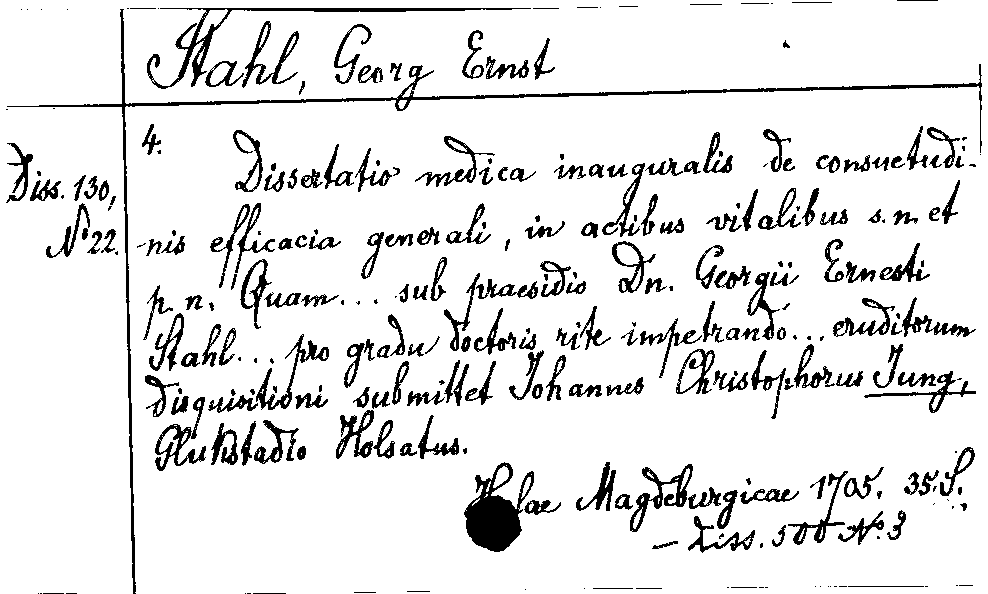 Stahl, Georg Ernst
4.
Diss. 130,
No 22.
Dissertatio medica inauguralis de consuetudi-
-nis efficacia generali, in actibus vitalibus s. n. et
p. n. Quam... sub praesidio Dn. Georgii Ernesti
Stahl... pro gradu doctoris rite impetrando... eruditorum
disquisitioni submittet Johannes Christophorus Jung,
Glukstadio Holsatus.
Magdeburgicae 1705. 35 S.
- Diss. 500 No. 3